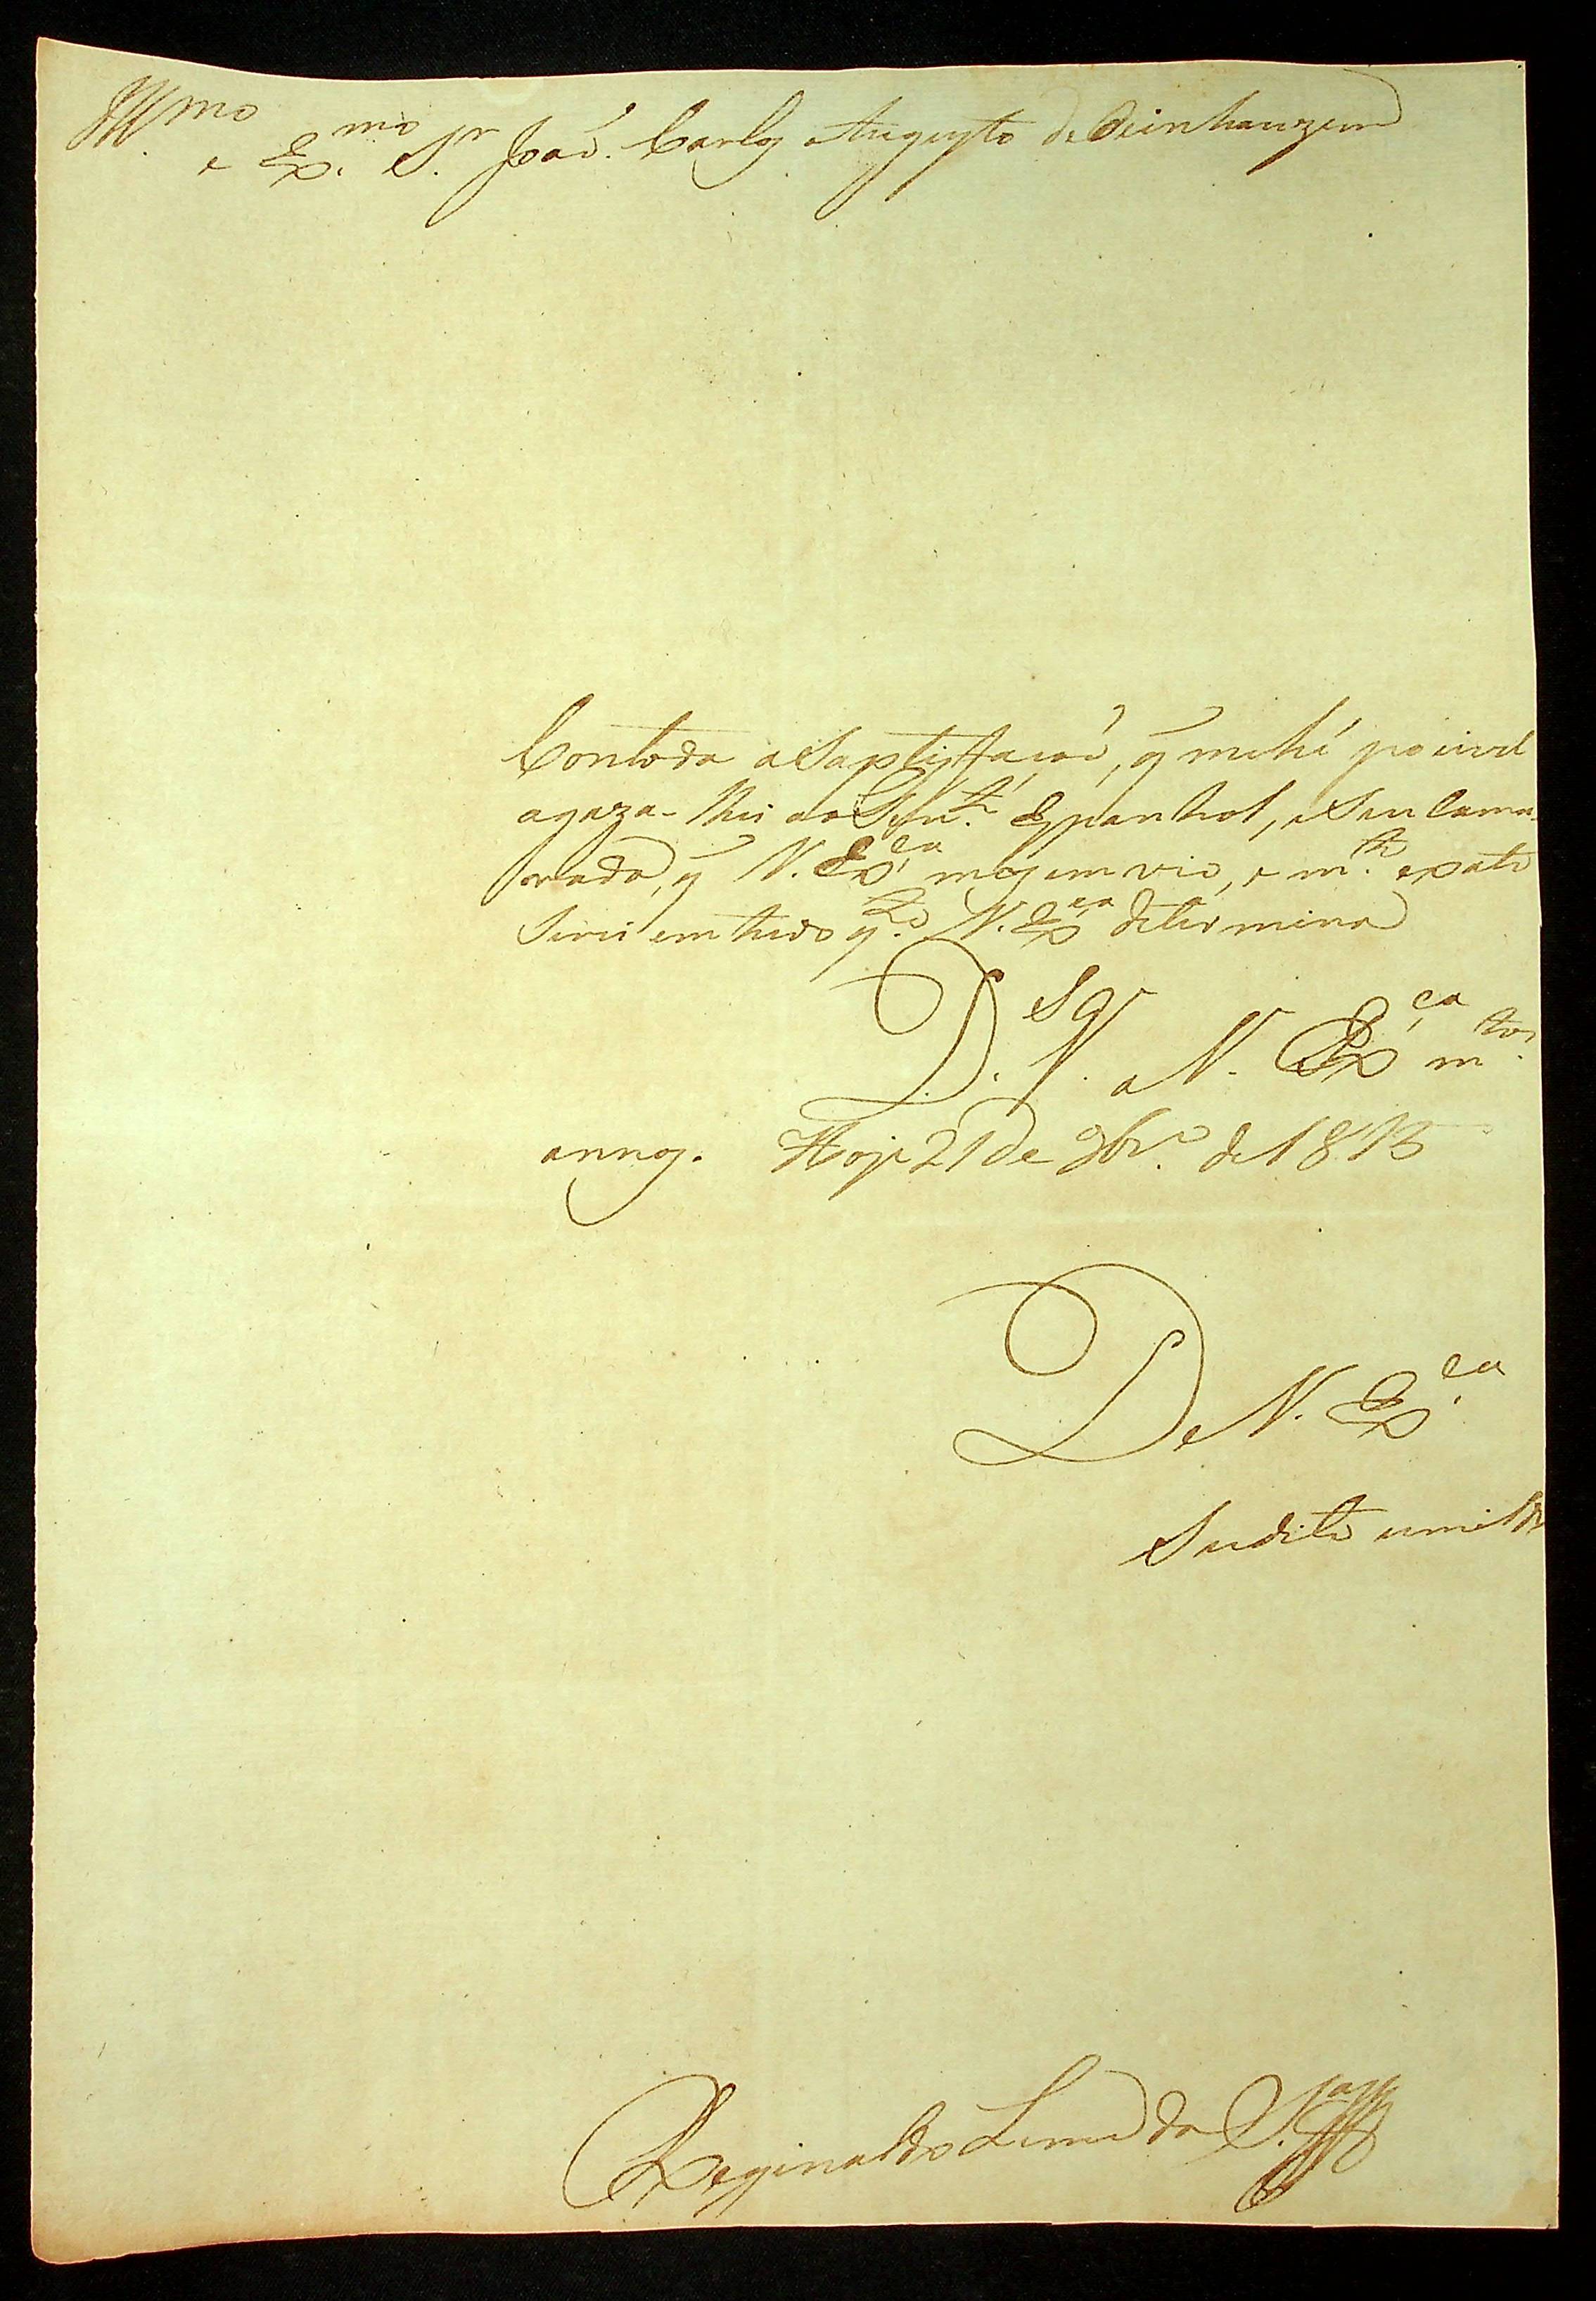 Ill.mo
e Ex.mo S.r João Carlos Augusto de Oeinhauzem
Contoda a Saptisfação, q̃ mehé pocivel
agaza-lhei ao Ten.te Espanhol, eSeu Cama-
rada, q̃ V. Ex.ca mos emvio, e m.to exato
Serei em tudo q.to V. Ex.ca determina
D.s g.e a V. Ex.ca m.tos
annos. Hoje 21 de 9br.o de 1813
De V. Ex.ca
Sudito umilde
Reginaldo Lemes da S.a